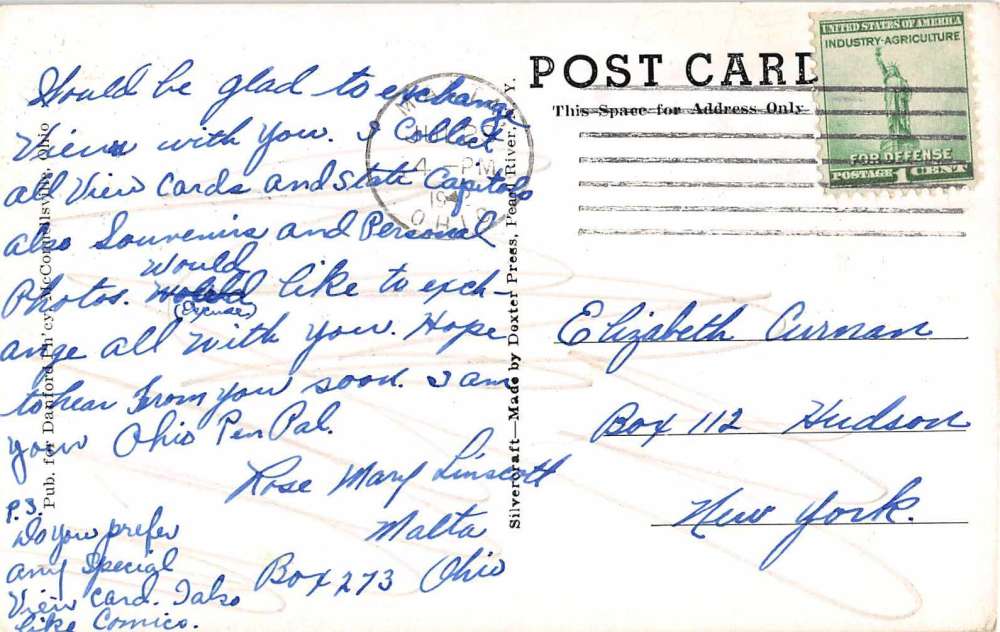 Would be glad to exchange
Views with you. I Collect
all View Cards and State Capitols
also Souvenirs and Personal
Would
Photos. like to exch-
(Excuse)
ange all with you. Hope
to hear From you soon. I am
your Ohio Pen Pal.
Rose Mary Linscott
Malta
Box 273 Ohio
P.S.
Do you prefer
any special
View Card. I also
like Comics.
Pub. for Danford Ph'cy, McConnellsville, Ohio
Silvercraft—Made by Dexter Press, Pearl River, N. Y.
POST CARD
This Space for Address Only
4 - PM
OHIO
UNITED STATES OF AMERICA
INDUSTRY-AGRICULTURE
FOR DEFENSE
POSTAGE 1 CENT
Elizabeth Curnan
Box 112 Hudson
New York.